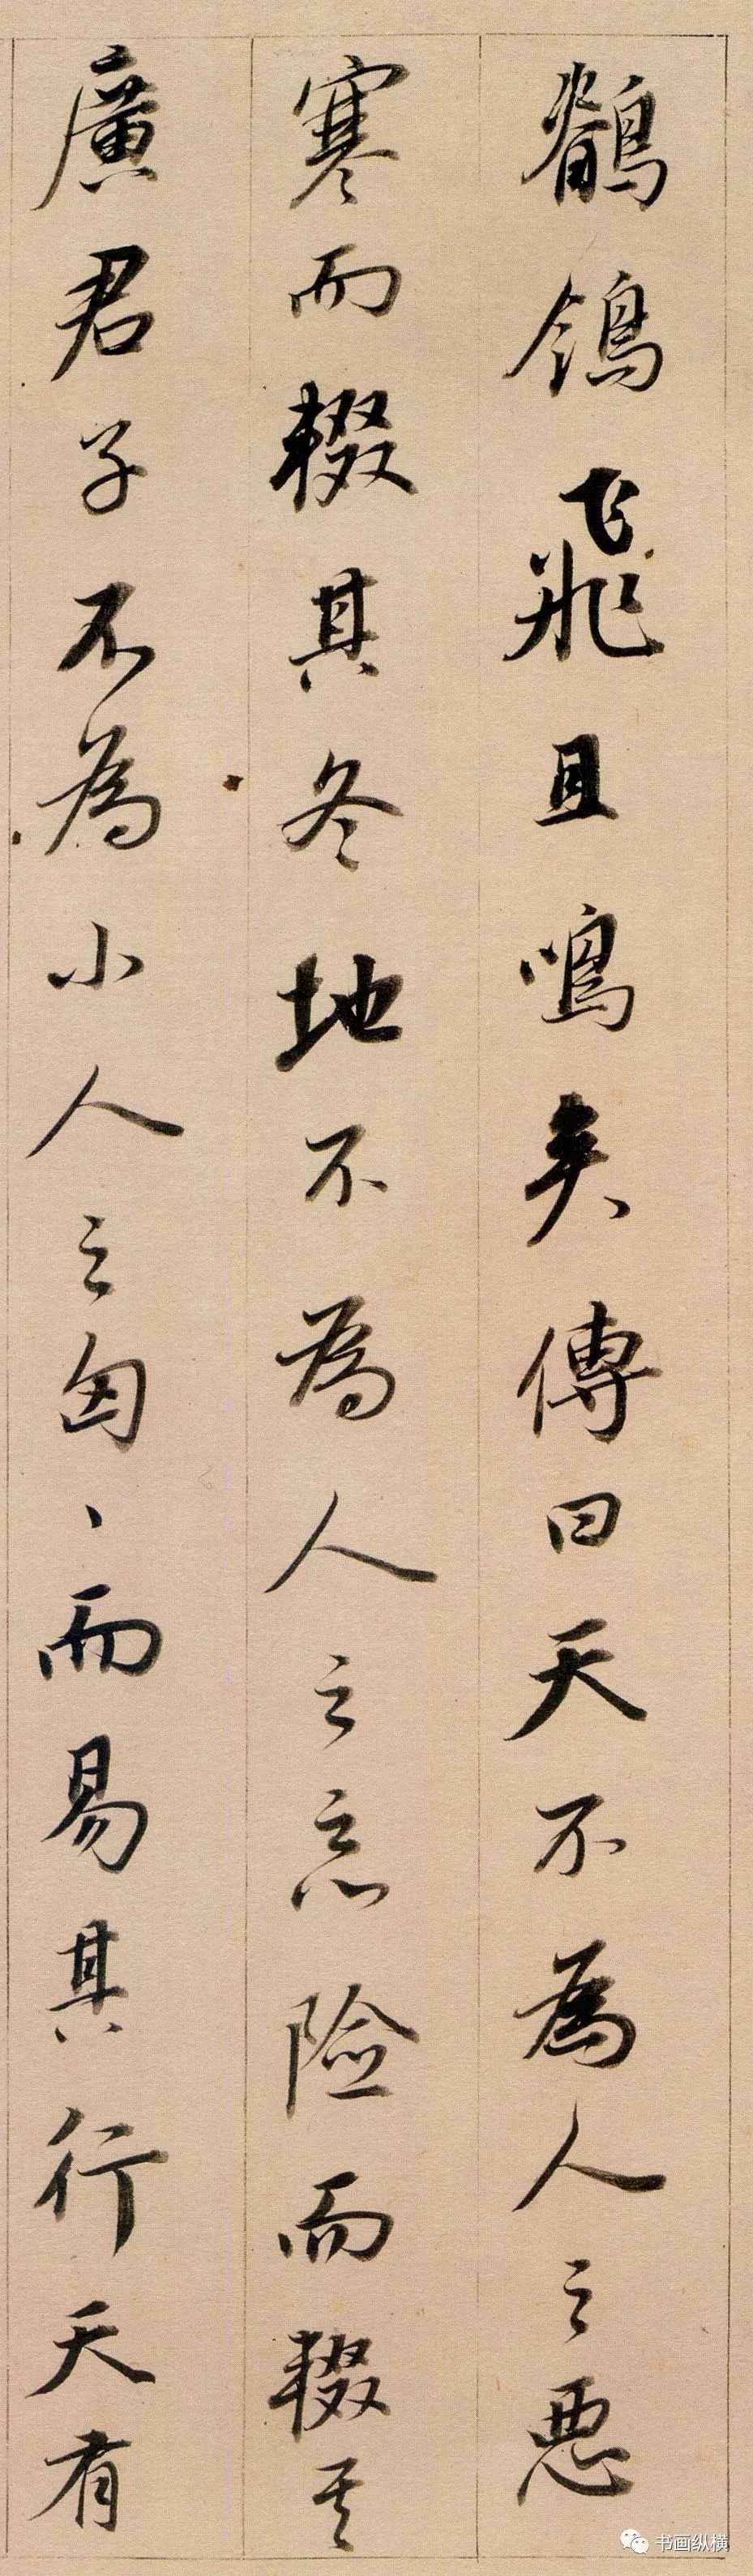 鶺鴒飛且鳴矣傳曰天不為人之惡
寒而輟其冬地不為人之惡險而輟其
廣君子不為小人之匈〻而易其行天有
书画纵横